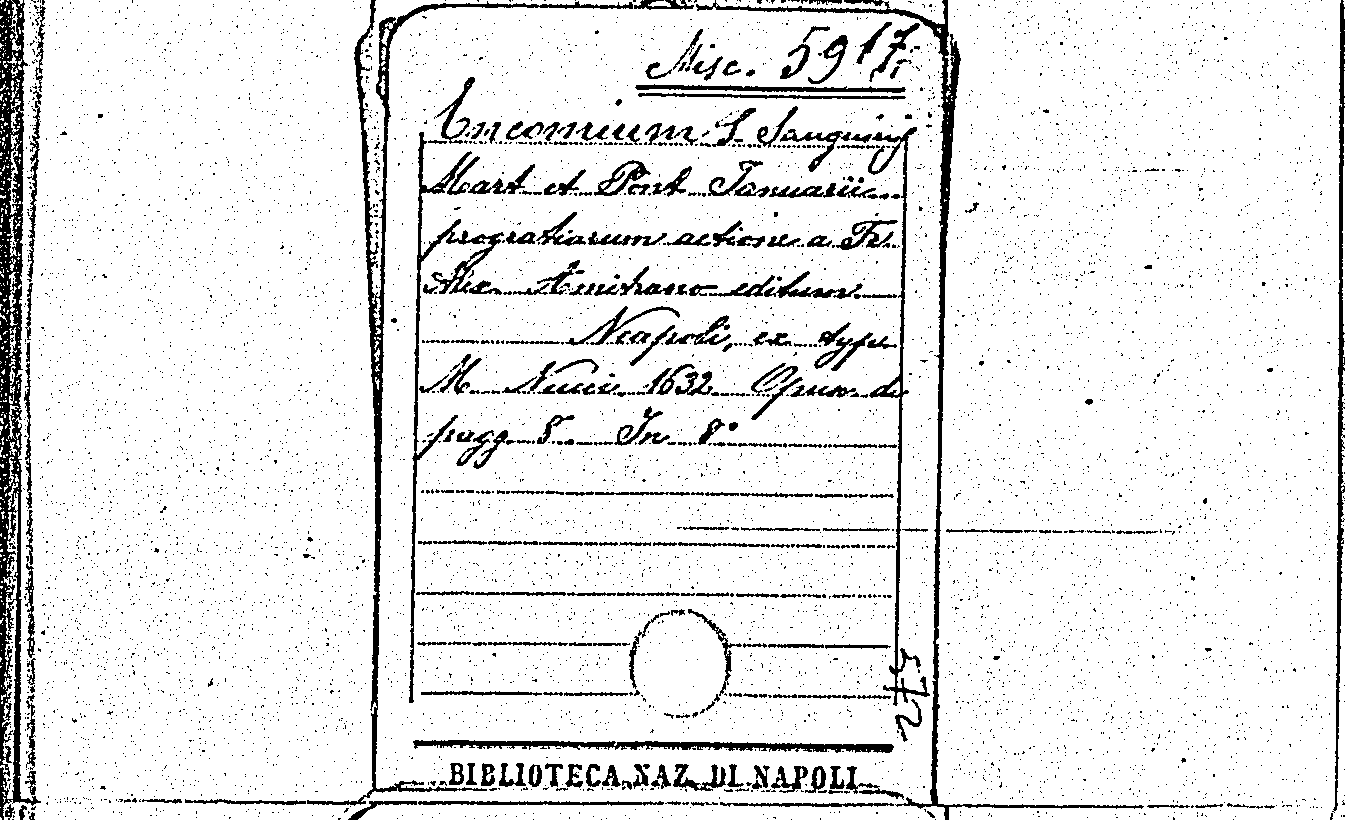 Misc. 59 17.
Encomium S. Sanguinis
Mart et Pont Januarii
progratiarum actione a Fr.
Alex. Amitrano editum
Neapoli, ex typu
M. Nucci 1632 Opusc di
pagg. 8. In 8°
275
BIBLIOTECA NAZ. DI NAPOLI